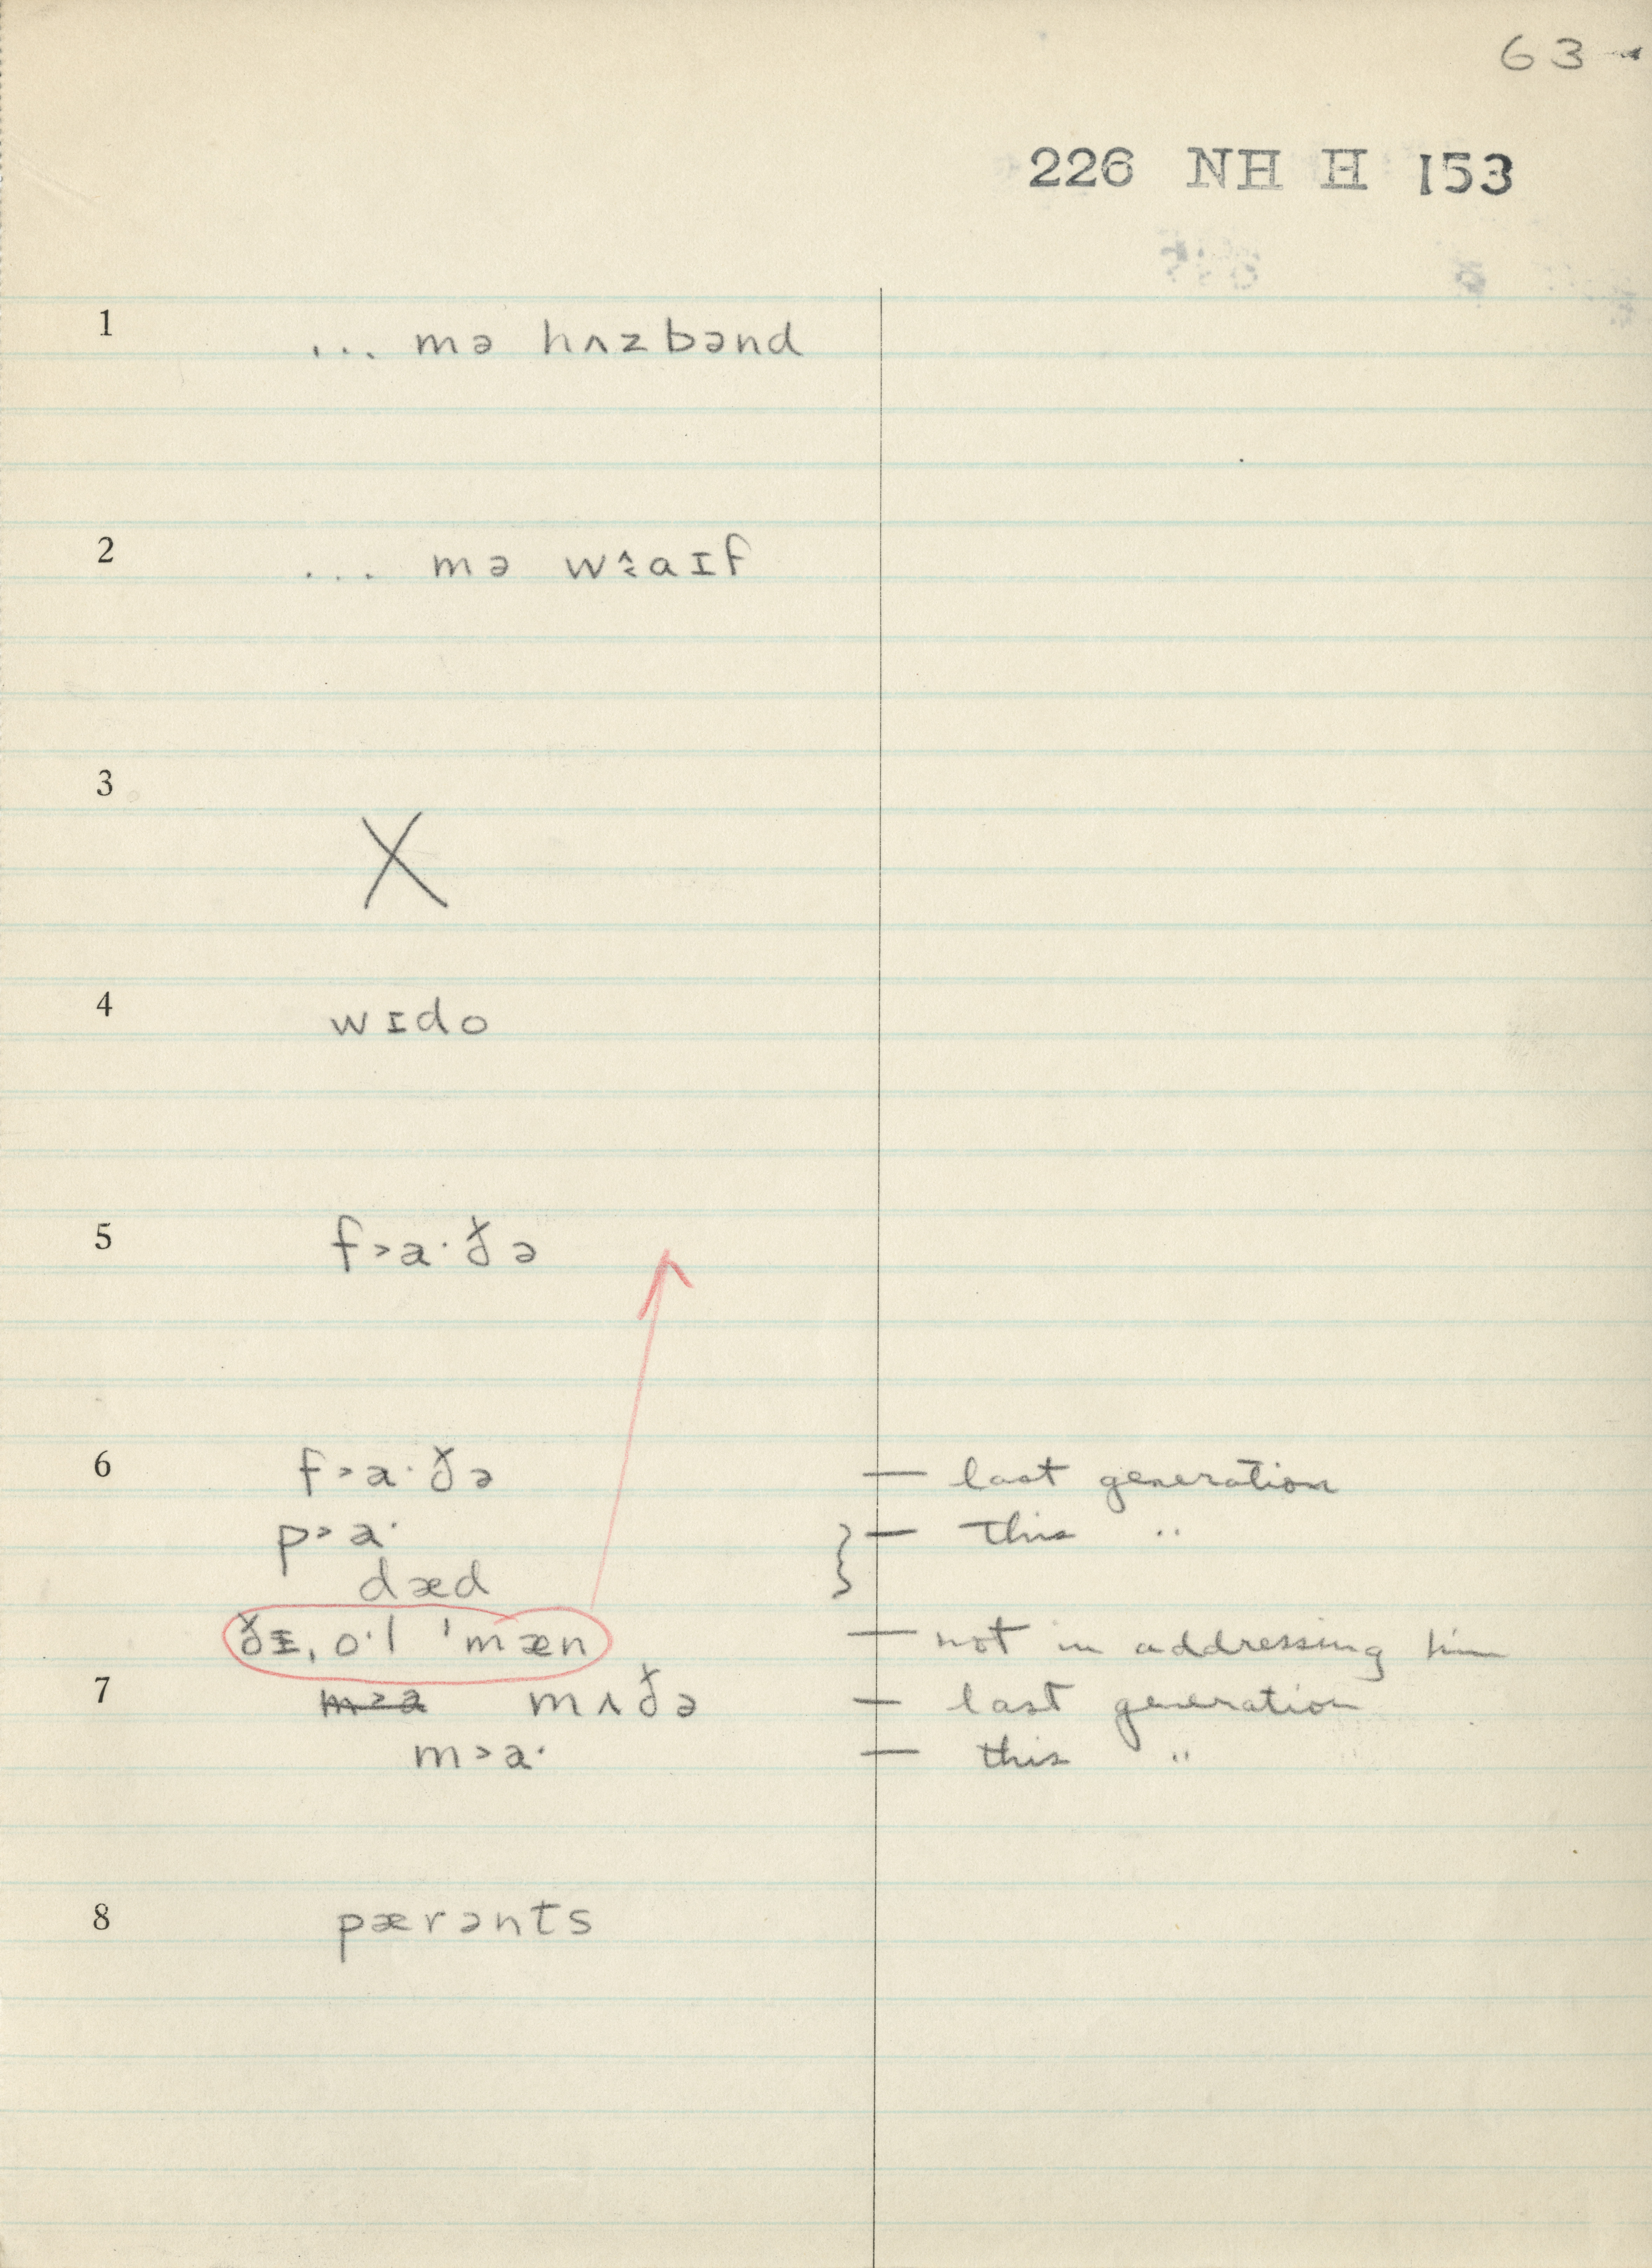 63
226 NH H 153
1 ... mə hʌzbənd
2 ... mə wɐaɪf
3 X
4 wɪdo
5 f>a·ðə
6 f>a·ðə — last generation
p>a· } — this "
dæd
ðɪ, o·l 'mæn — not in addressing him
7 m>a mʌðə — last generation
m>a· — this "
8 pærənts